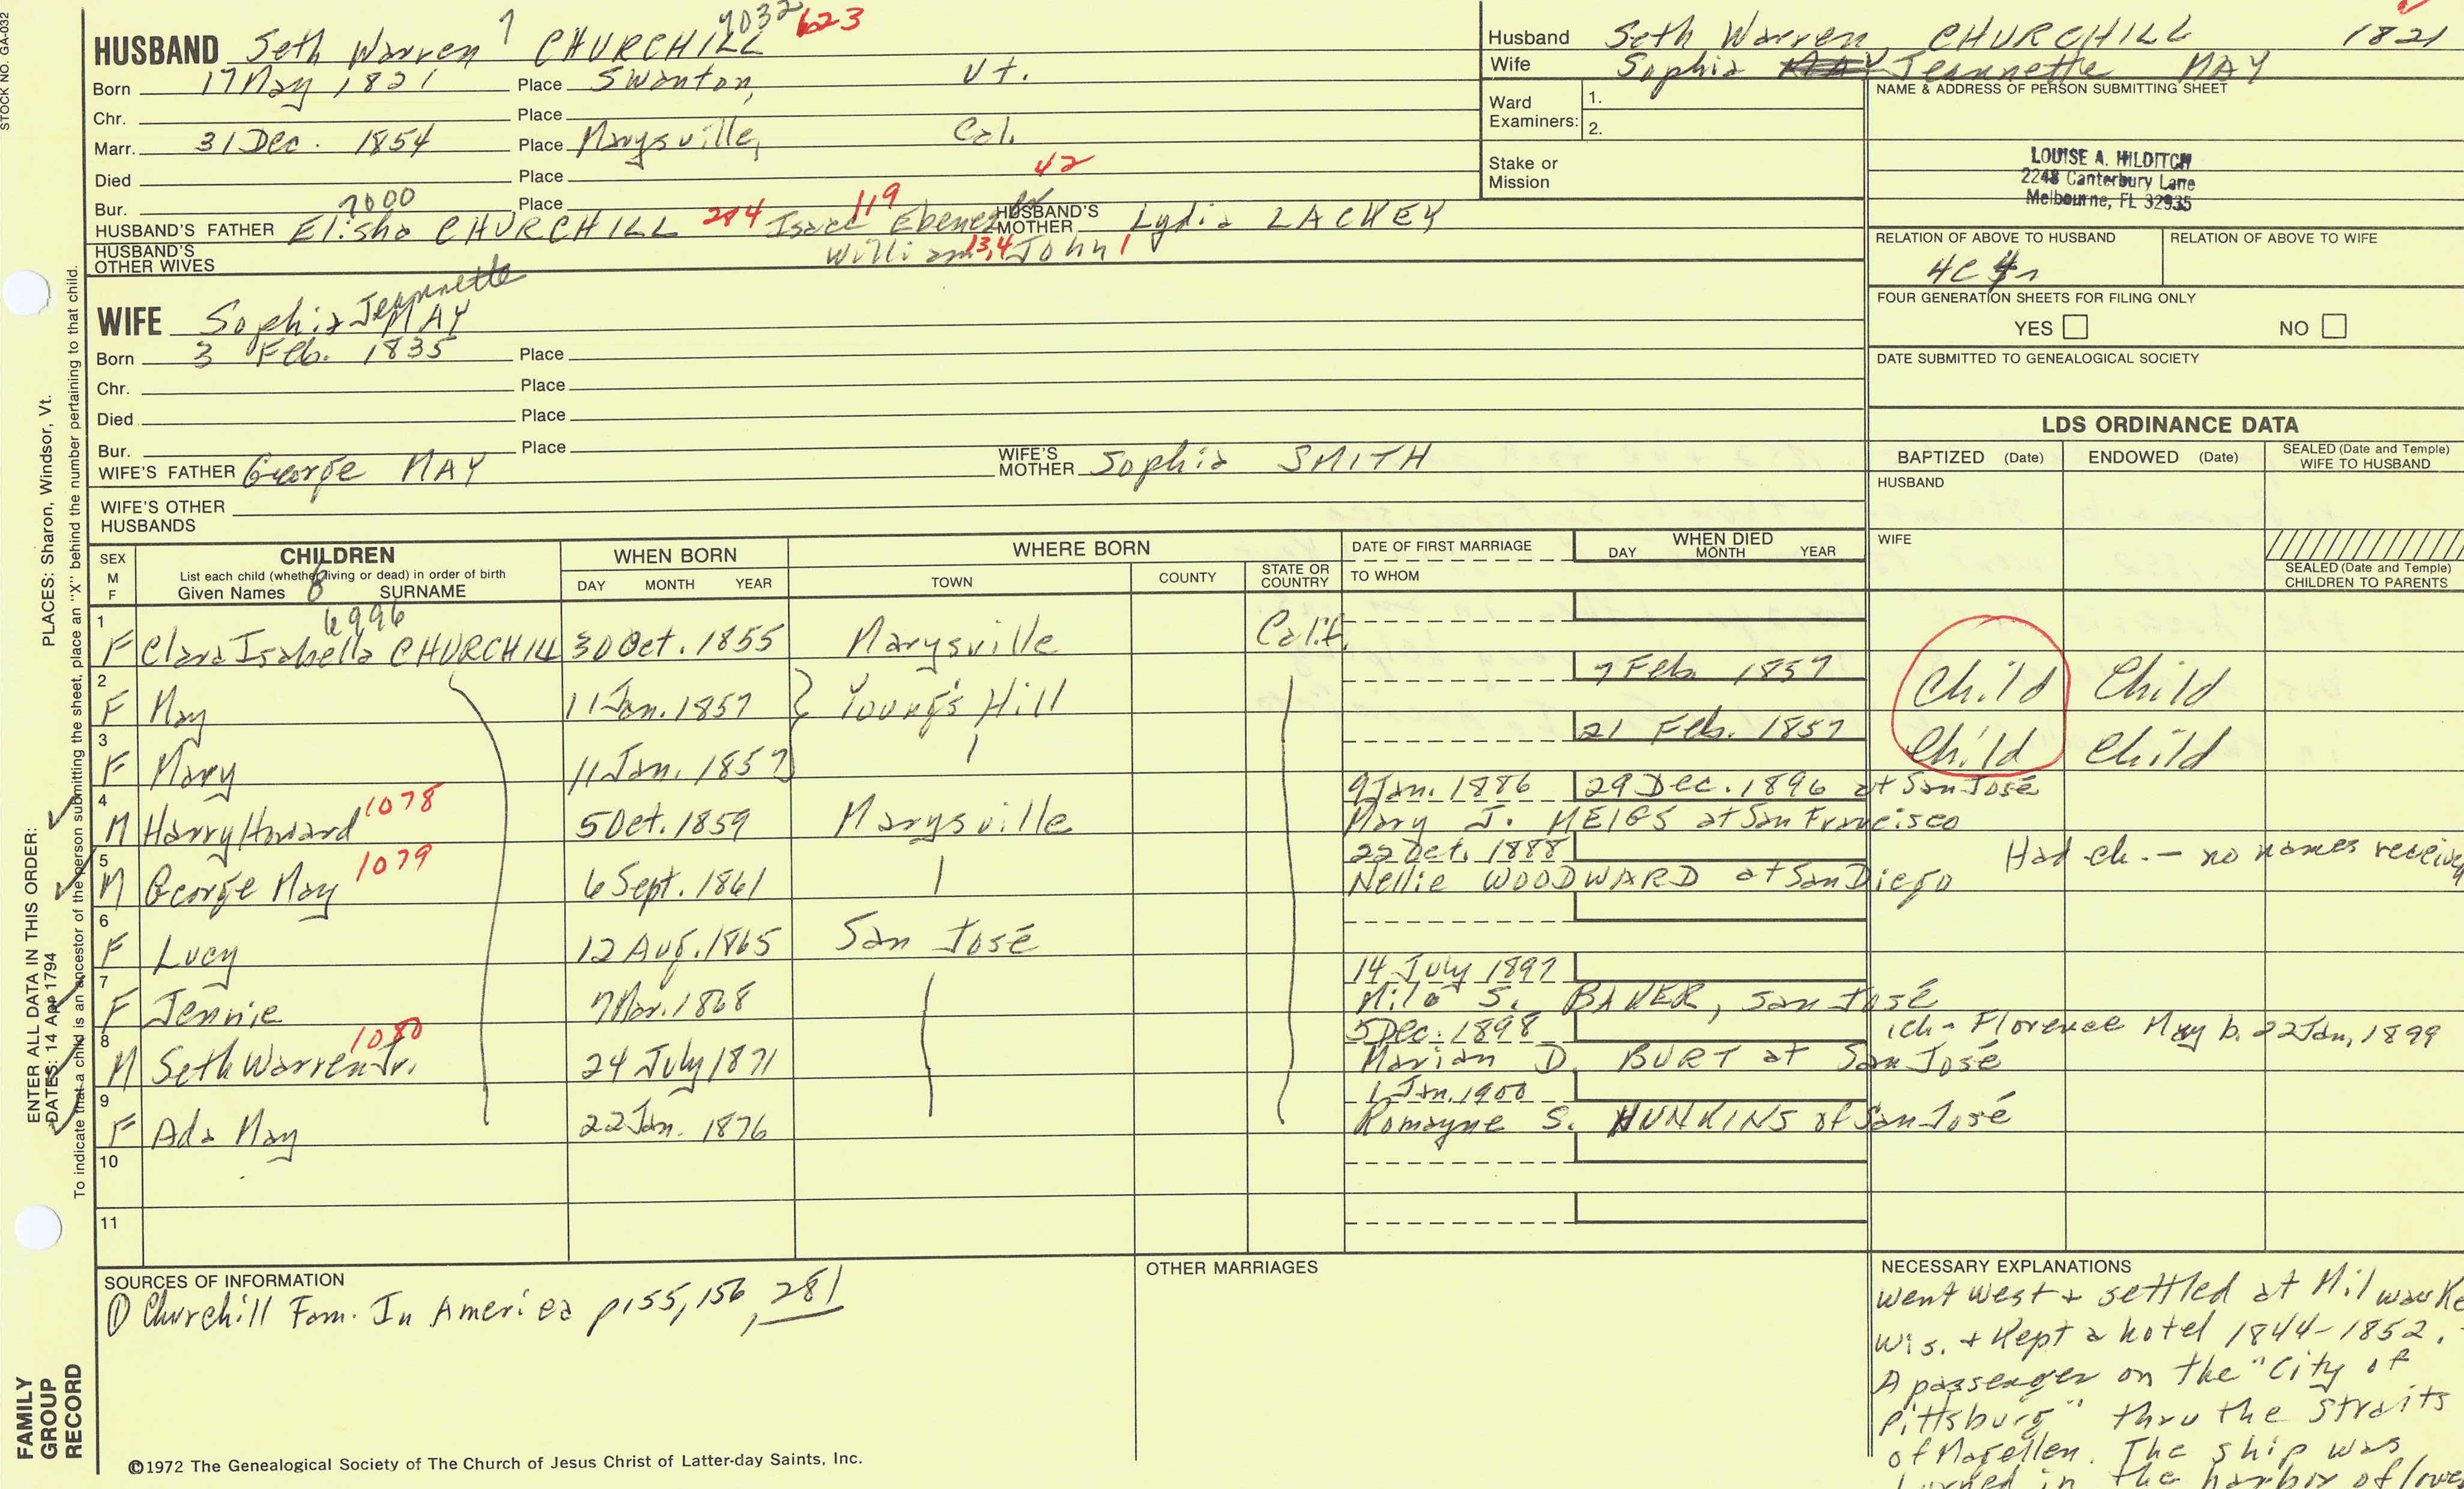 STOCK NO. GA-032
7 7032 623
HUSBAND Seth Warren CHURCHILL
Born 17 May 1821 Place Swanton, Vt.
Chr. Place
Marr. 31 Dec. 1854 Place Marysville, Cal.
Died Place
42
Bur. Place
7000 284 119
HUSBAND'S FATHER Elisha CHURCHILL Isaac Ebenezer HUSBAND'S MOTHER Lydia LACKEY
William 13,4 John 1
HUSBAND'S OTHER WIVES
WIFE Sophia Jeannette MAY
Born 3 Feb. 1835 Place
Chr. Place
Died Place
Bur. Place
WIFE'S FATHER George MAY WIFE'S MOTHER Sophia SMITH
WIFE'S OTHER HUSBANDS
Husband Seth Warren CHURCHILL 1821
Wife Sophia Jeannette MAY
Ward Examiners: 1.
2.
Stake or Mission
NAME & ADDRESS OF PERSON SUBMITTING SHEET
LOUISE A. HILDITCH
2248 Canterbury Lane
Melbourne, FL 32935
RELATION OF ABOVE TO HUSBAND RELATION OF ABOVE TO WIFE
4C 4r
FOUR GENERATION SHEETS FOR FILING ONLY
YES NO
DATE SUBMITTED TO GENEALOGICAL SOCIETY
LDS ORDINANCE DATA
BAPTIZED (Date) ENDOWED (Date) SEALED (Date and Temple) WIFE TO HUSBAND
HUSBAND
WIFE
SEALED (Date and Temple) CHILDREN TO PARENTS
SEX M F
CHILDREN
List each child (whether living or dead) in order of birth
Given Names 8 SURNAME
WHEN BORN
DAY MONTH YEAR
WHERE BORN
TOWN COUNTY STATE OR COUNTRY
DATE OF FIRST MARRIAGE
TO WHOM
WHEN DIED
DAY MONTH YEAR
6996
1 F Clara Isabella CHURCHILL 30 Oct. 1855 Marysville Calif.
2 F May 11 Jan. 1857 Young's Hill 7 Feb. 1857 Child Child
3 F Mary 11 Jan. 1857 21 Feb. 1857 Child Child
4 M Harry Howard 1078 5 Oct. 1859 Marysville 9 Jan. 1886 29 Dec. 1896 at San José
Mary J. MEIGS at San Francisco
5 M George May 1079 6 Sept. 1861 22 Oct. 1888 Had ch. - no names
Nellie WOODWARD at San Diego
6 F Lucy 12 Aug. 1865 San José
7 F Jennie 7 Mar. 1868 14 July 1897
Milo S. BAKER, San José
8 M Seth Warren Jr. 1080 24 July 1871 5 Dec. 1898 1ch - Florence May b. 22 Jan, 1899
Marian D. BURT at San José
9 F Ada May 22 Jan. 1876 1 Jan. 1900
Romayne S. HUNKINS of San José
10
11
SOURCES OF INFORMATION
① Churchill Fam. In America p155, 156, 281
OTHER MARRIAGES
NECESSARY EXPLANATIONS
went west + settled at
Wis. + kept a hotel 1844-1852.
A passenger on the "City of
Pittsburg" thru the Straits
of Magellen. The ship was
burned in the harbor of
©1972 The Genealogical Society of The Church of Jesus Christ of Latter-day Saints, Inc.
FAMILY GROUP RECORD
ENTER ALL DATA IN THIS ORDER:
DATES: 14 Apr 1794
PLACES: Sharon, Windsor, Vt.
To indicate that a child is an ancestor of the person submitting the sheet, place an "X" behind the number pertaining to that child.